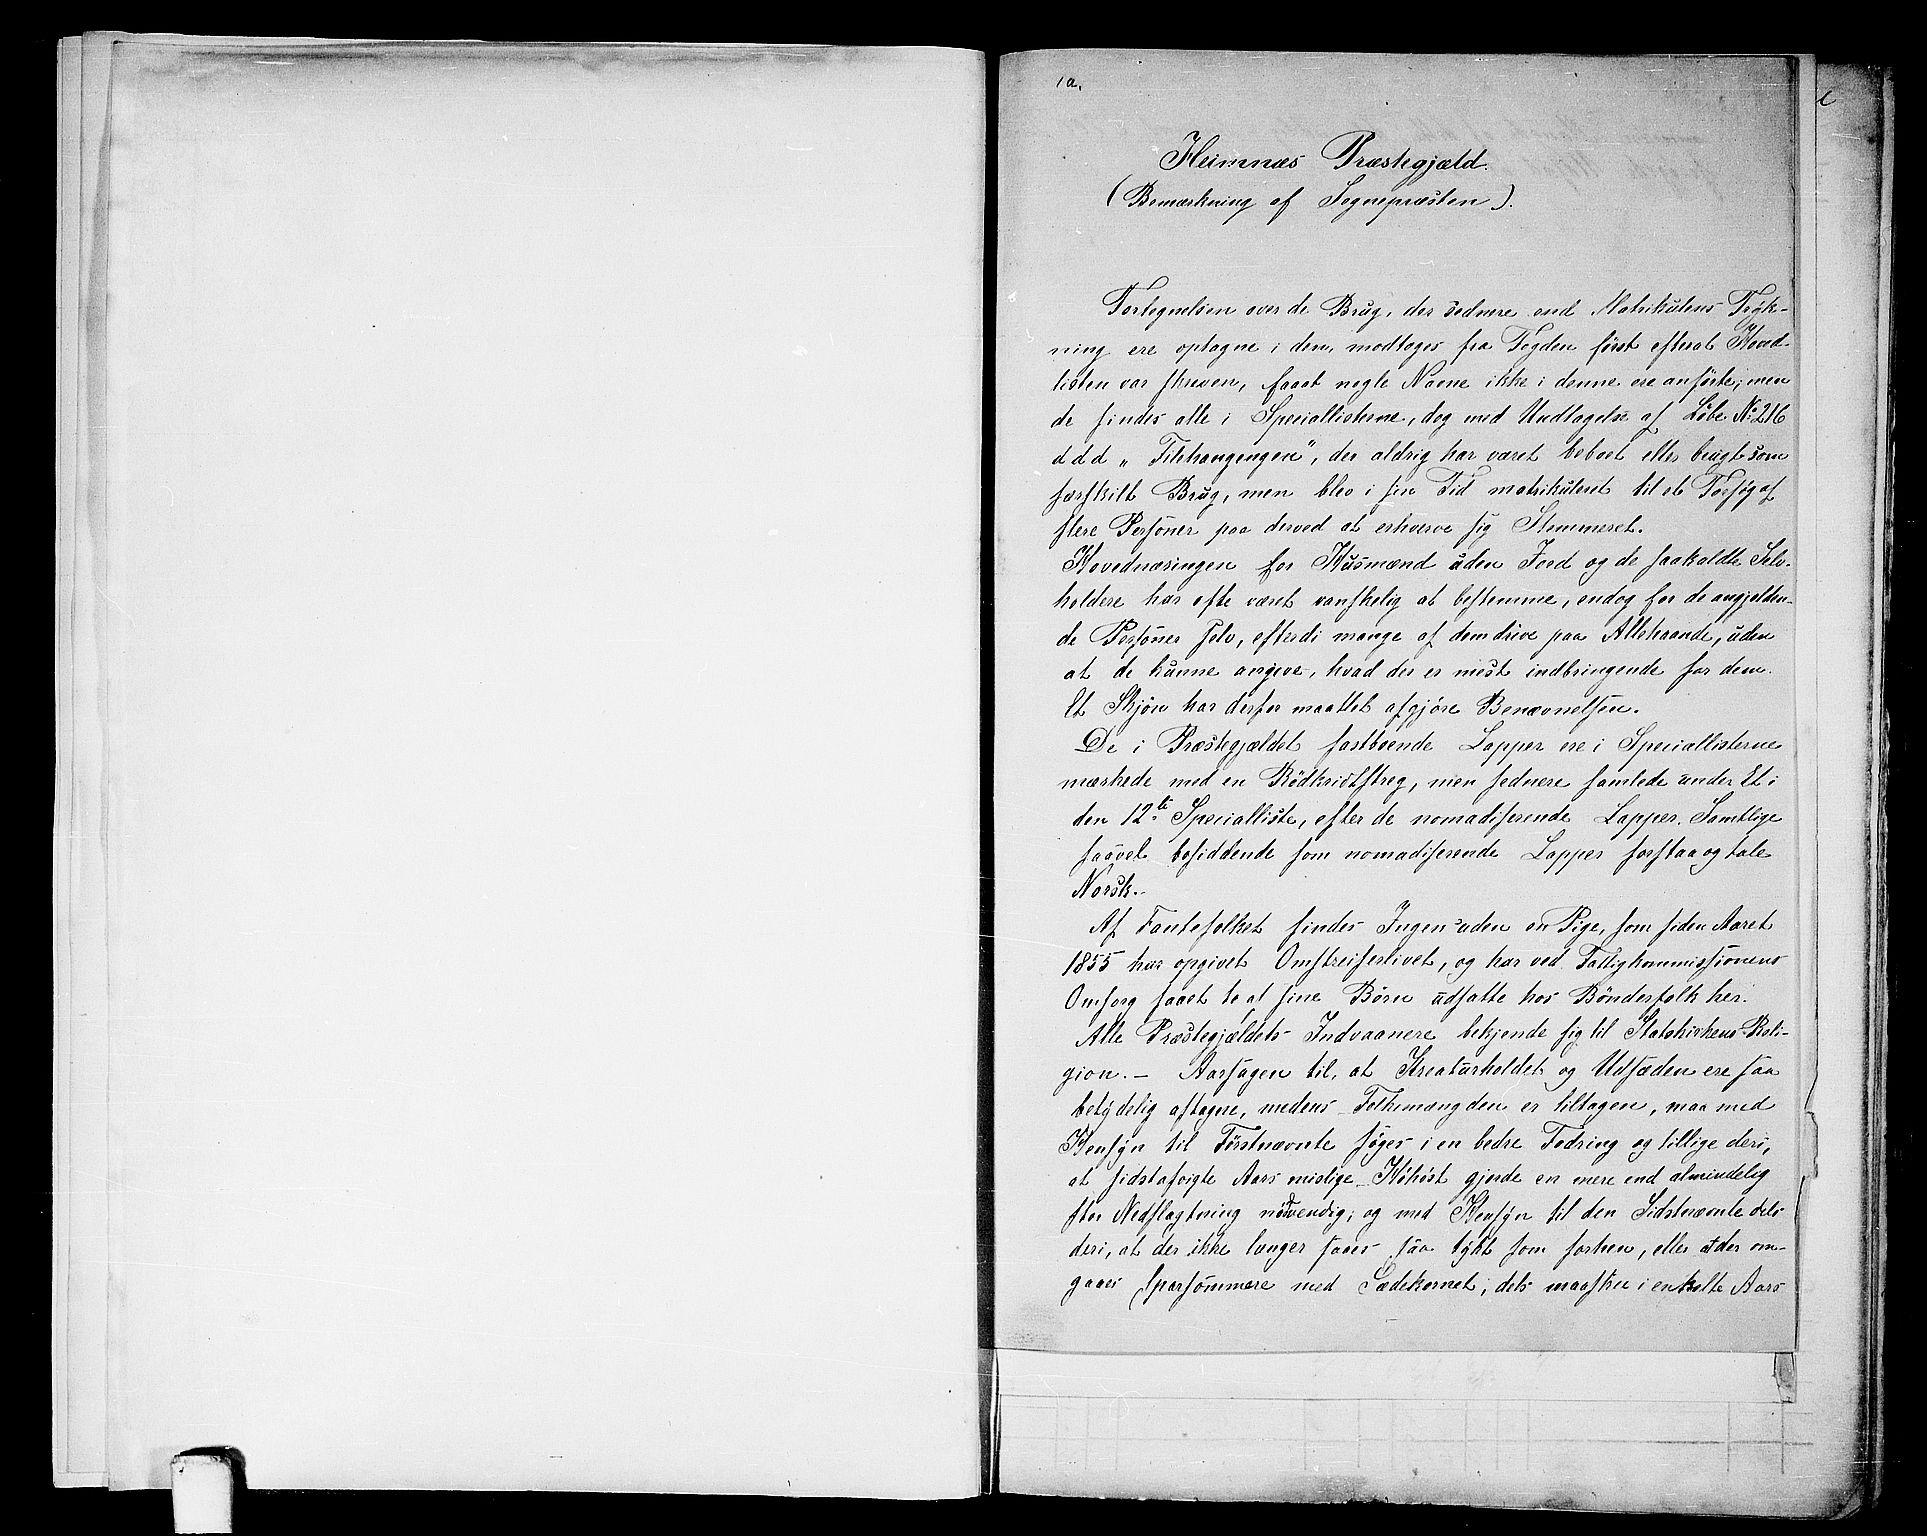 1a.
Hemnæs Præstegjæld.
(Bemærkning af Sognepræsten).
Fortegnelsen over de Brug, der sednere end Matrikulens Tryk-
ning ere optagne i den, modtoges fra Fogden först efterat Hoved-
listen var skreven, saaat nogle Navne ikke i denne ere anförte; men
de findes alle i Speciallisterne, dog med Undtagelse af Löbe No 216
ddd „ Tilhængengen", der aldrig har været beboet eller brugt som
særskilt Brug, men blev i sin Tid matrikuleret til et Forsög af
flere Personer paa derved at erhverve sig Stemmeret.
Hovednæringen for Husmænd uden Jord og de saakaldte Selv-
holdere har ofte været vanskelig at bestemme, endog for de angjelden-
de Personer selv, efterdi mange af dem drive paa Allehaande, uden
at de kunne angive, hvad der er mest indbringende for dem.
Et Skjön har derfor maattet afgjöre Benævnelsen.
De i Præstegjældet fastboende Lapper ere i Speciallisterne
mærkede med en Rödkridtstreg, men sednere samlede under Et i
den 12te Specialliste, efter de nomadiserende Lapper. Samtlige
saavel besiddende som nomadiserende Lapper forstaa og tale
Norsk.
Af Fantefolket findes Ingen uden en Pige, som siden Aaret
1855 har opgivet Omstreiferlivet, og har ved Fattigkommissionens
Omsorg faaet to af sine Börn udsatte hos Bönderfolk her.
Alle Præstegjældets Indvaanere bekjende sig til Statskirkens Reli-
gion. — Aarsagen til, at Kreaturholdet og Udsæden ere saa
betydelig aftagne, medens Folkemængden er tiltagen, maa med
Hensyn til Förstnævnte söges i en bedre Fodring og tillige deri,
at sidstafvigte Aars mislige Höhöst gjorde en mere end almindelig
stor Nedslagtning nödvendig; og med Hensyn til den Sidstnævnte dels
deri, at der ikke længer saaes saa tykt som forhen, eller at der om-
gaaes sparsommere med Sædekornet; dels maaskee i enkelte Aars